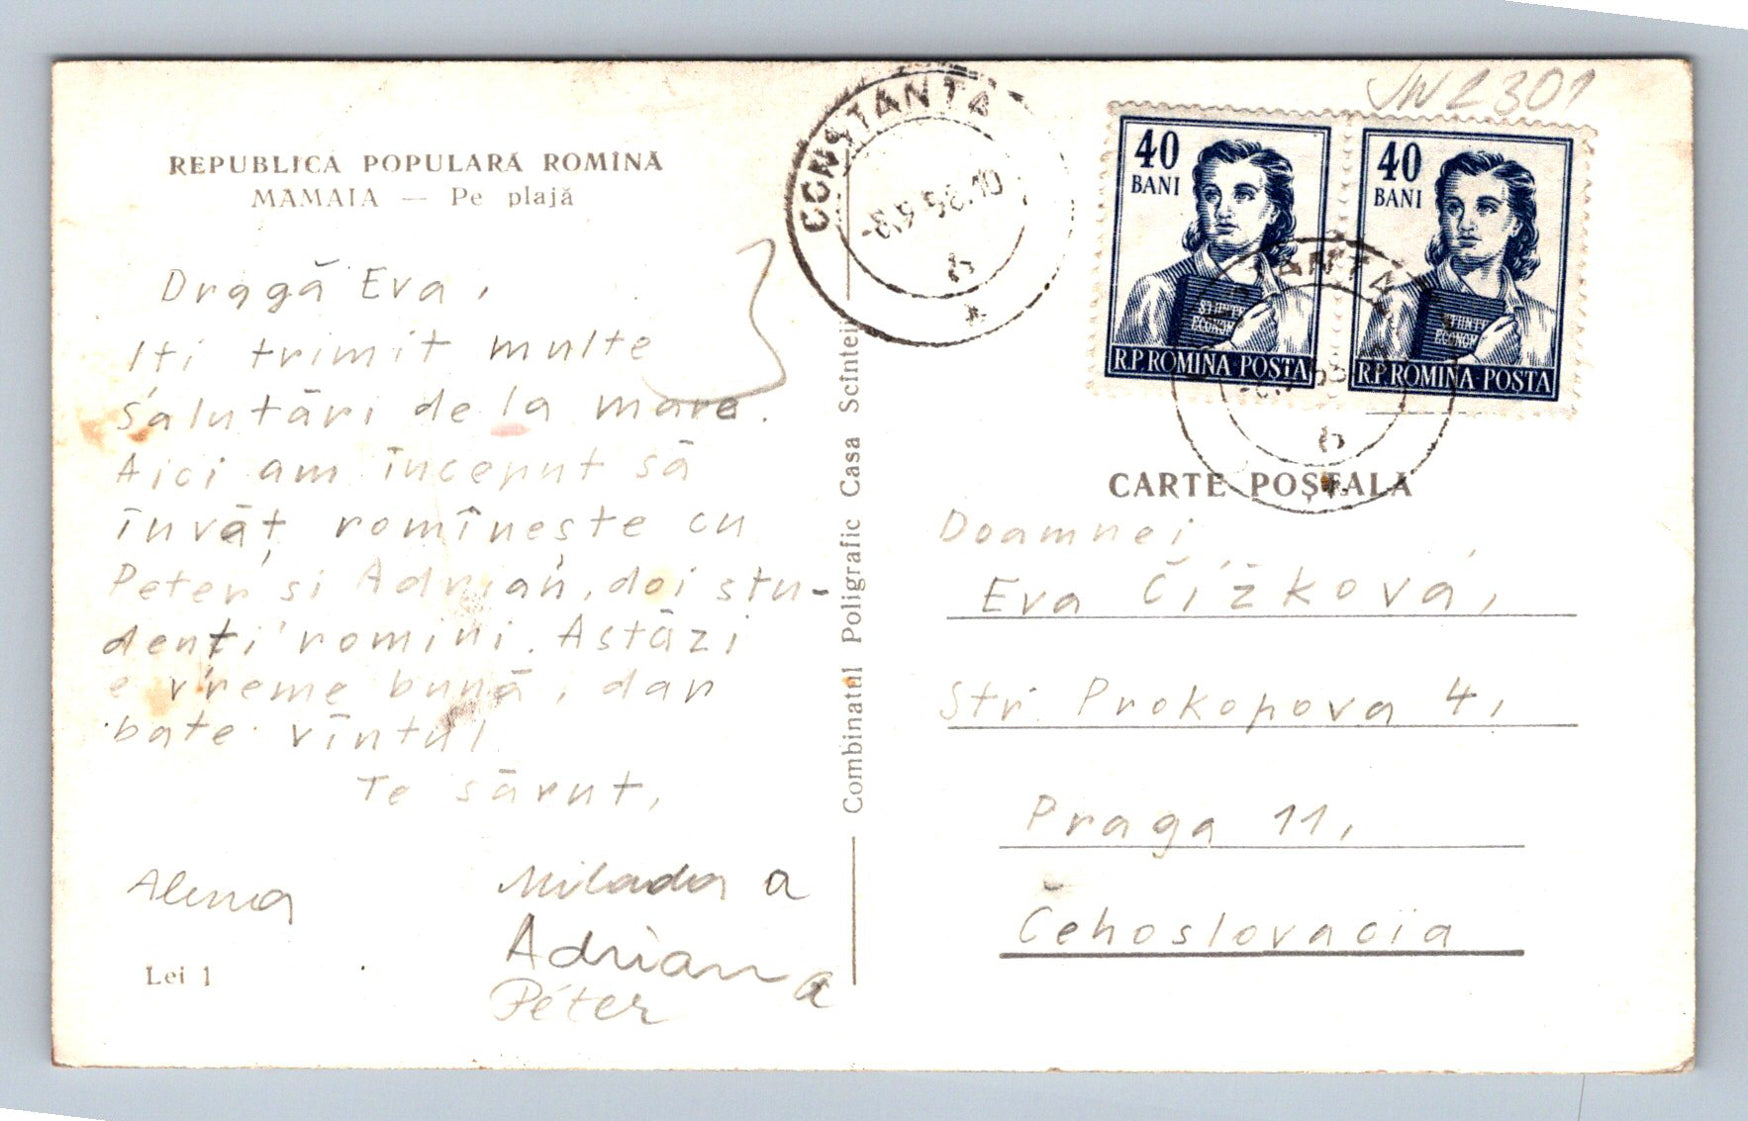 REPUBLICA POPULARĂ ROMÎNĂ
MAMAIA — Pe plajă
Dragă Eva,
Iti trimit multe
salutări de la mare.
Aici am început să
învăț romînește cu
Peter si Adrian, doi stu-
denți romini. Astăzi
e vreme bună, dar
bate vîntul
Te sărut,
Alena
Milada a
Adrian a
Péter
Lei 1
Combinatul Poligrafic Casa Scînteii
CONSTANTA
-8.9 58.10
JW2301
40
BANI
STIINTE
ECONOM
R.P.ROMINA·POSTA
40
BANI
STIINTE
ECONOM
R.P.ROMINA·POSTA
CARTE POȘTALĂ
Doamnei
Eva Čížková,
Str. Prokopova 4,
Praga 11,
Čehoslovacia